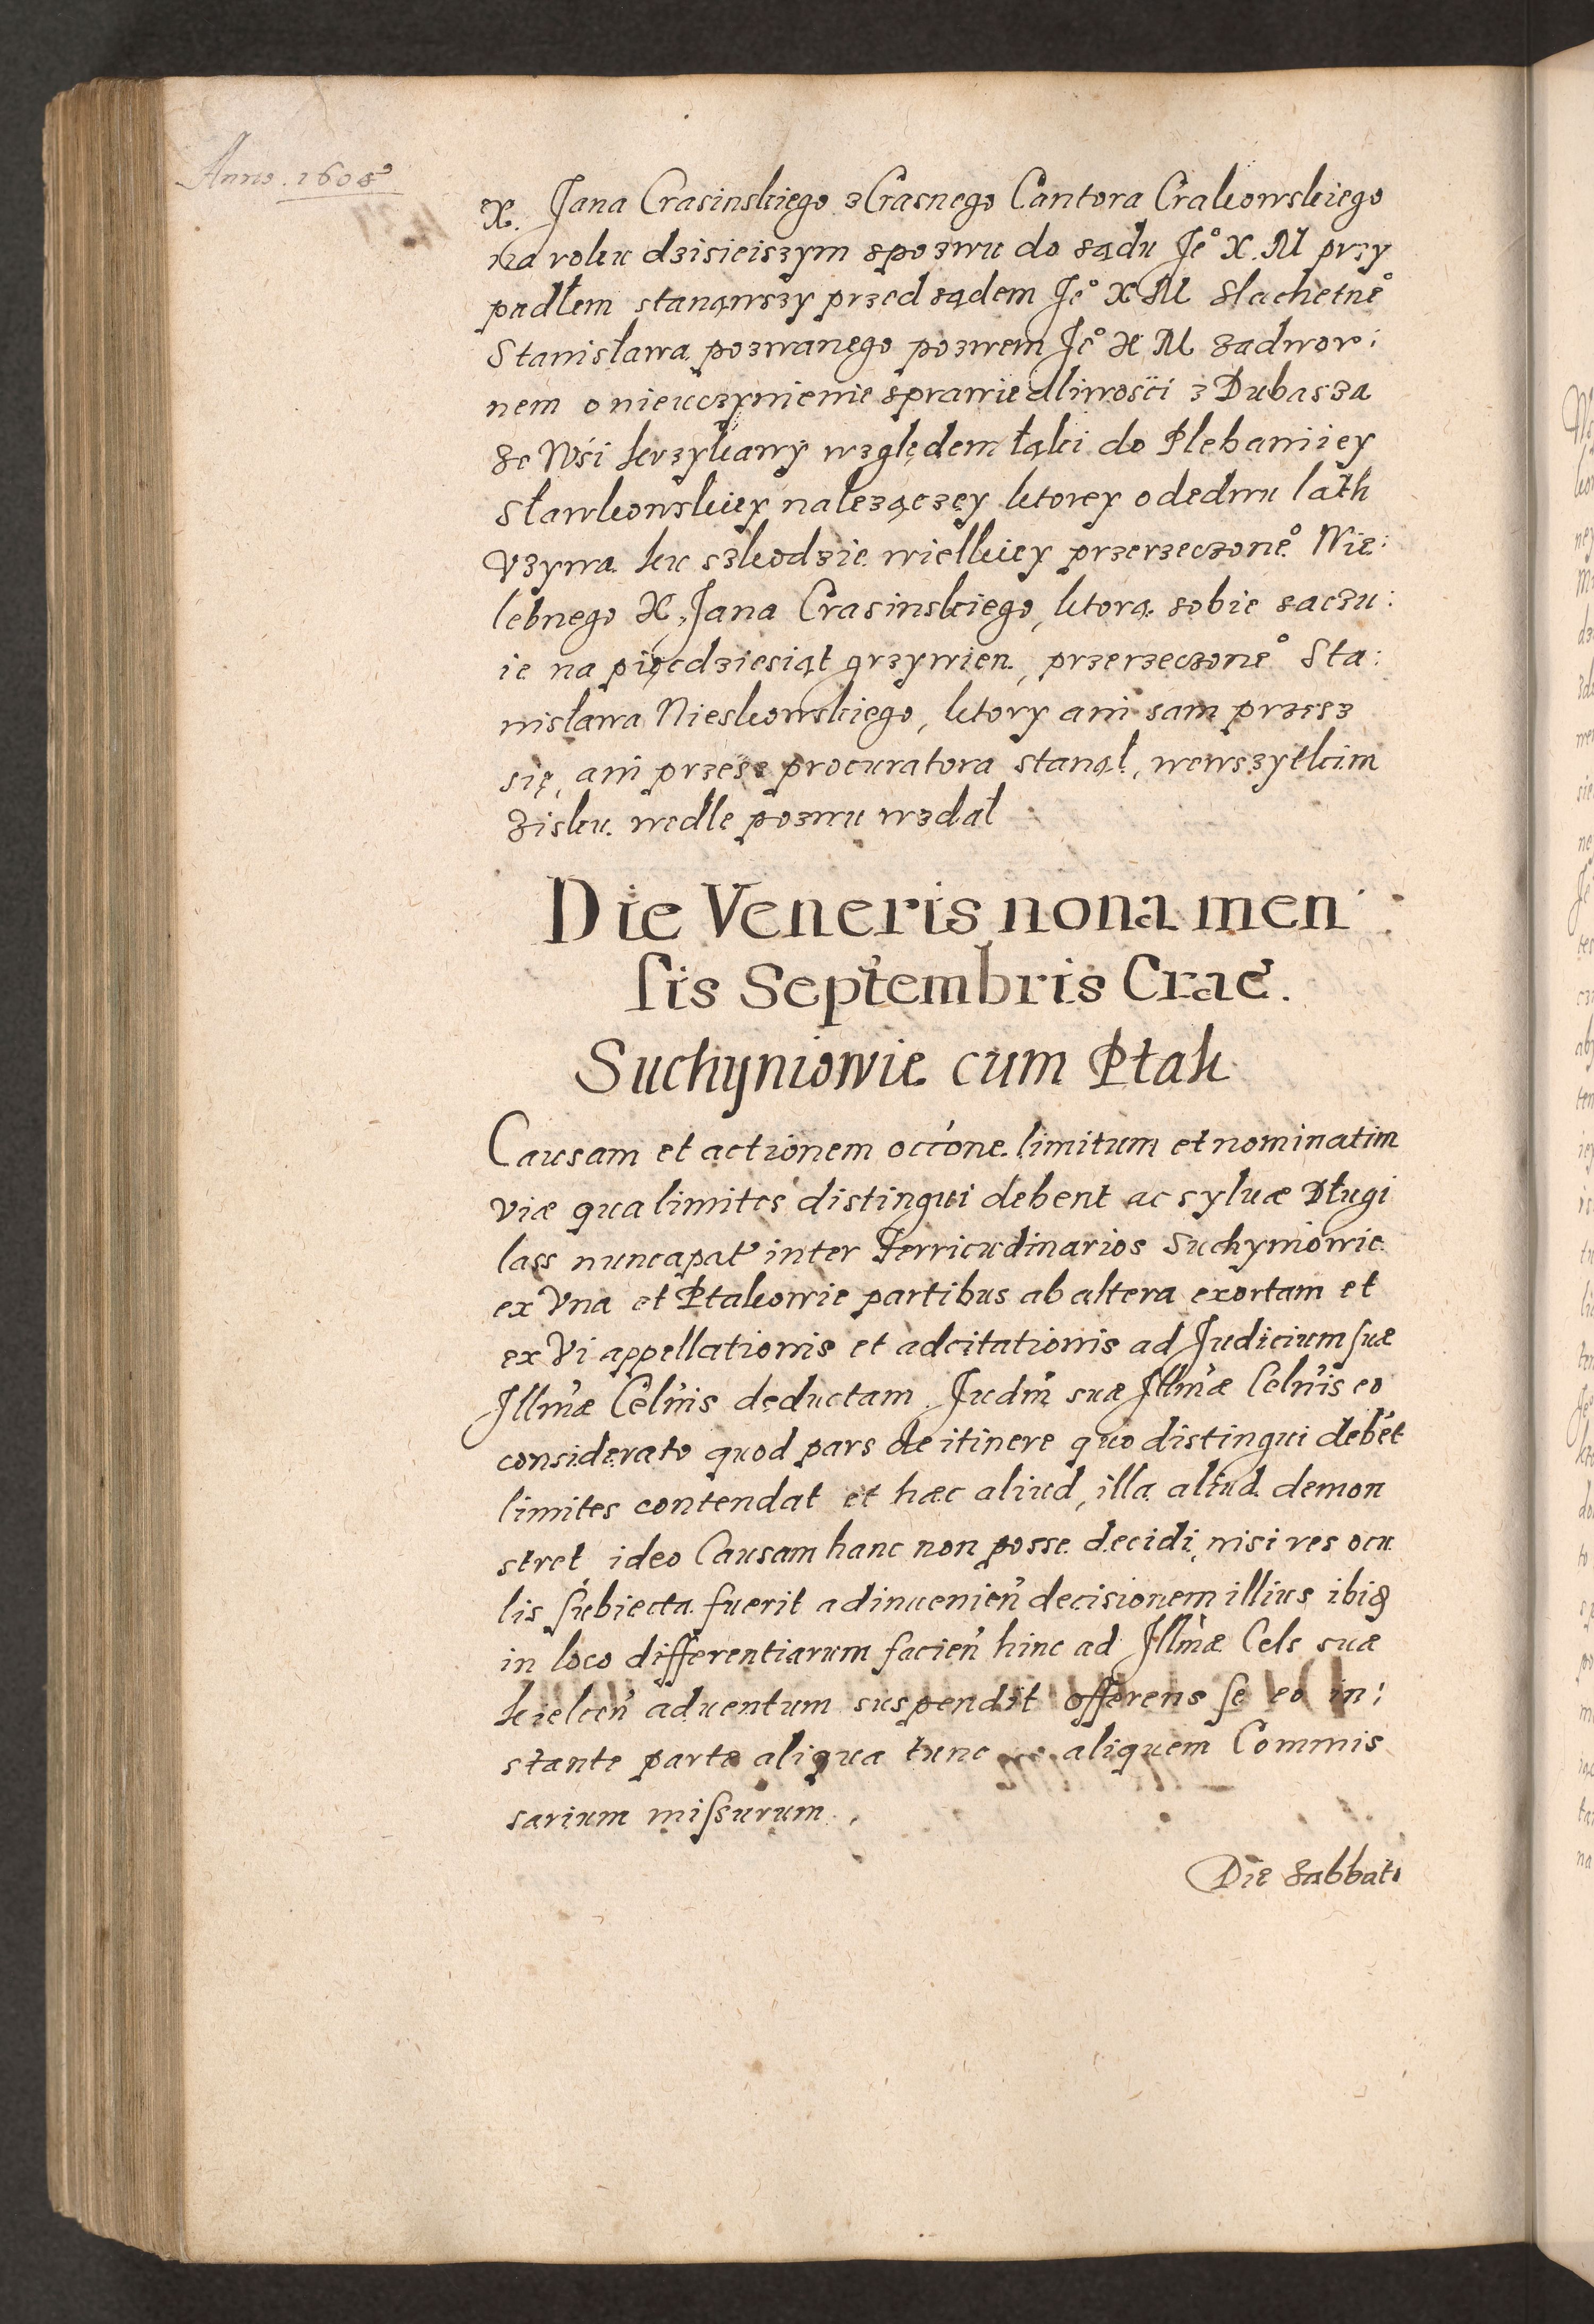 Anno. 1608
X. Jana Crasinskiego z Crasnego Cantora Crakowskiego
na roku dzisieiszym spozwu do sądu Je° X. M przy
padłem stanąwszy przed sądem Je° X M Slachetne°
Stanisława pozwanego pozwem Je° X M zadwor:
nem o nieuczynienie sprawiedliwosći z Dubasza
ze Wśi krzykawÿ względem łąki do Plebaniiey
Sławkowskiey nalezączęy ktorey odedwu lath
Vzywa ku szkodzie wielkiey przerzeczone° Wie:
lebnego X. Jana Crasinskiego, ktorą sobie saczu:
ie na pięcdziesiąt grzywien, przerzeczone° Sta:
nisława Nieskowskiego, ktory ani sam przesz
się, ani przesz procuratora stanął, wewszytkim
Zisku wedle pozwu wzdał
Die Veneris nona men
sis Septembris Crae.
Suchyniowie cum Ptak
Causam et actionem occone limitum et nominatim
viæ qua limites distingui debent ac syluæ Długi
lass nuncapat inter Terricudinarios Suchyniowie
ex Vna et Ptakowie partibus ab altera exortam et
ex Vi appellationis et adcitationis ad Judicium suæ
Illmæ Celnis deductam. Judm suæ Illmæ Celnis eo
considerato quod pars de itinere quo distingui debet
limites contendat et hæc aliud, illa aliud demon
stret ideo Causam hanc non posse decidi, nisi res ocu
lis subiecta fuerit adinuenien decisionem illius ibiq
in loco differentiarum facien hinc ad Illmæ Cels suæ
kielcen aduentum suspendit offerens se eo in:
stante parte aliqua tunc aliquem Commis
sarium missurum.
Die Sabbati